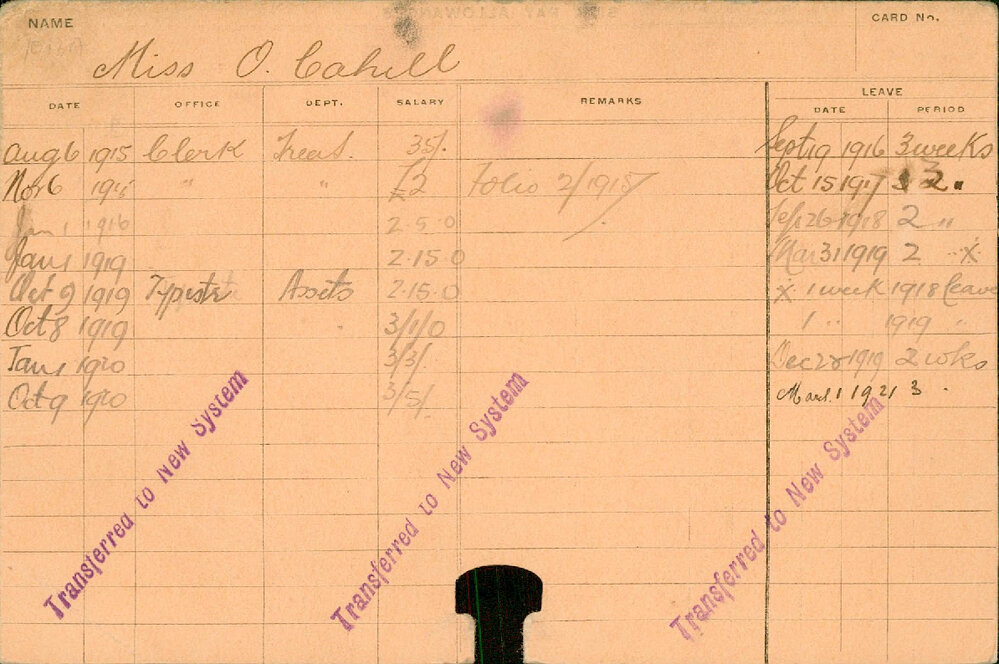 NAME
CARD No.
Miss O. Cahill
LEAVE
DATE OFFICE DEPT. SALARY REMARKS DATE PERIOD
Aug 6 1915 Clerk Treas. 35/. Sept 19 1916 3 weeks
Nov 6 191 " " £2 Folio 2/1915 Oct 15 1917 2 "
Jan 1 1916 2.5.0 Sep 26 1918 2 "
Jan 1 1919 2.15.0 Mar 31 1919 2 " x
Oct 9 1919 Typiste Assets 2.15.0 x 1 week 1918 leave
Oct 8 1919 " 3/1/0 1 " 1919 "
Jan 1 1920 3/3/. Dec 1919 2 wks
Oct 9 1920 3/5/. March 1 1921 3 "
Transferred to New System
Transferred to New System
Transferred to New System